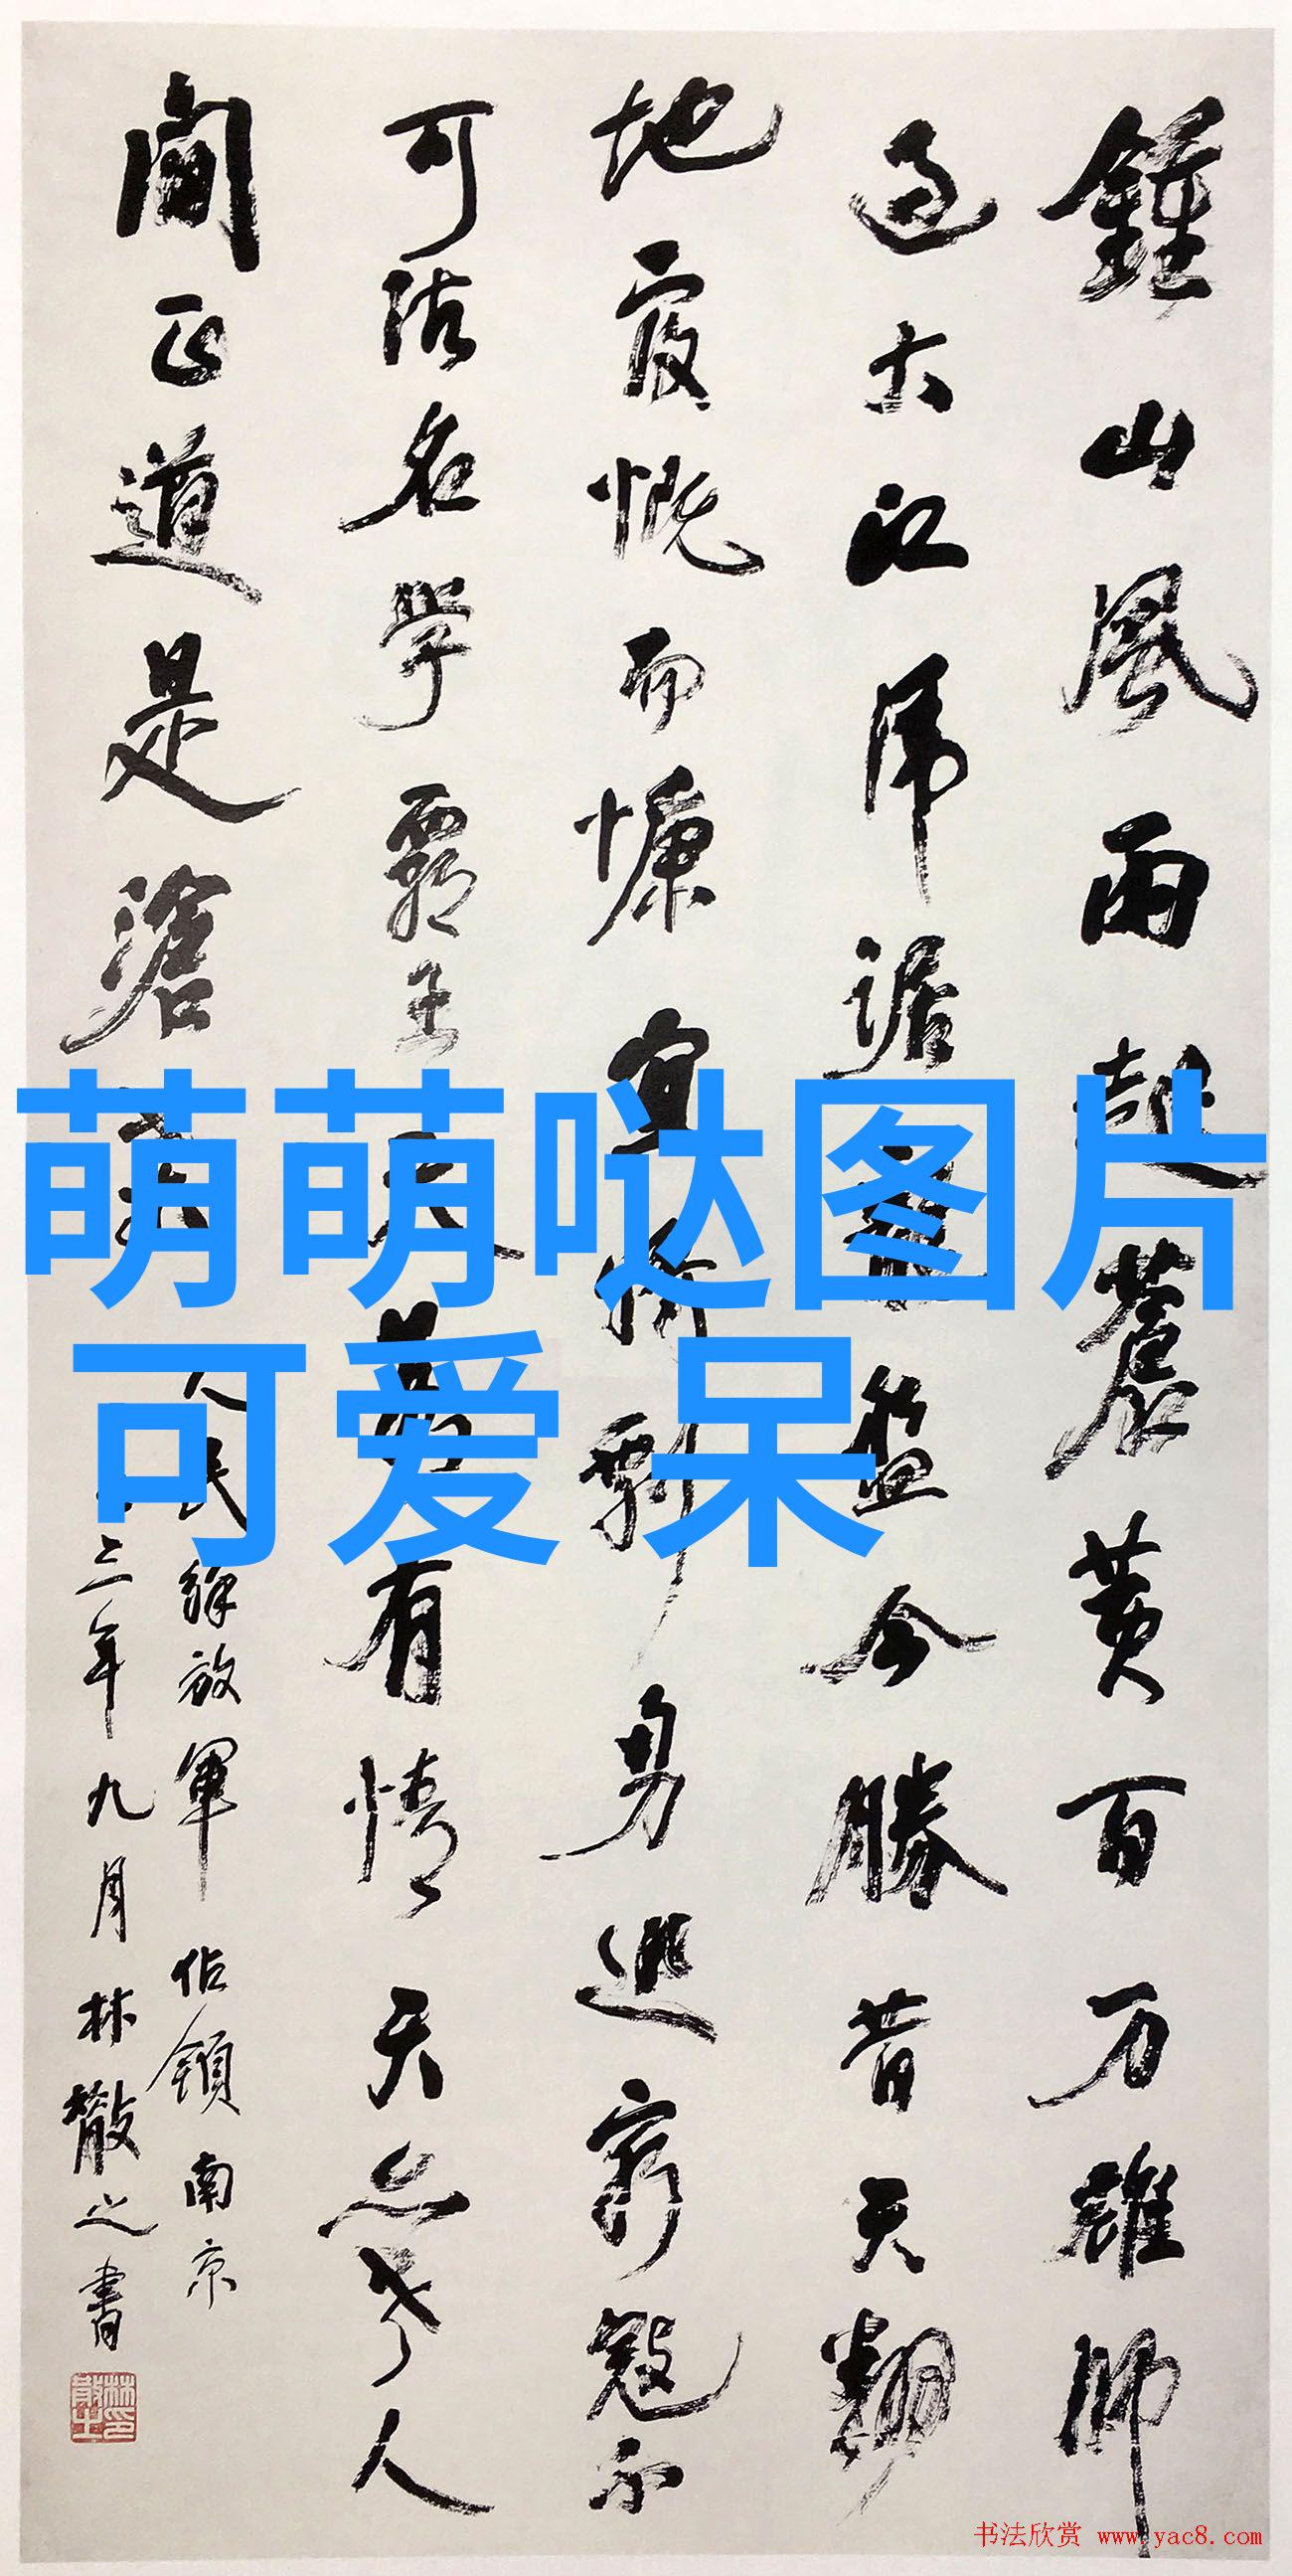 鍾山風雨起蒼黄百万雄師
过大江虎踞龍盤今勝昔天翻
地覆慨而慷宜将剩勇追窮寇不
可沽名學霸王天若有情天亦老人
間正道是滄桑
人民解放軍佔領南京
三年九月林散之書
林散之印
萌萌哒图片
可爱 呆
书法欣赏 www.yac8.com